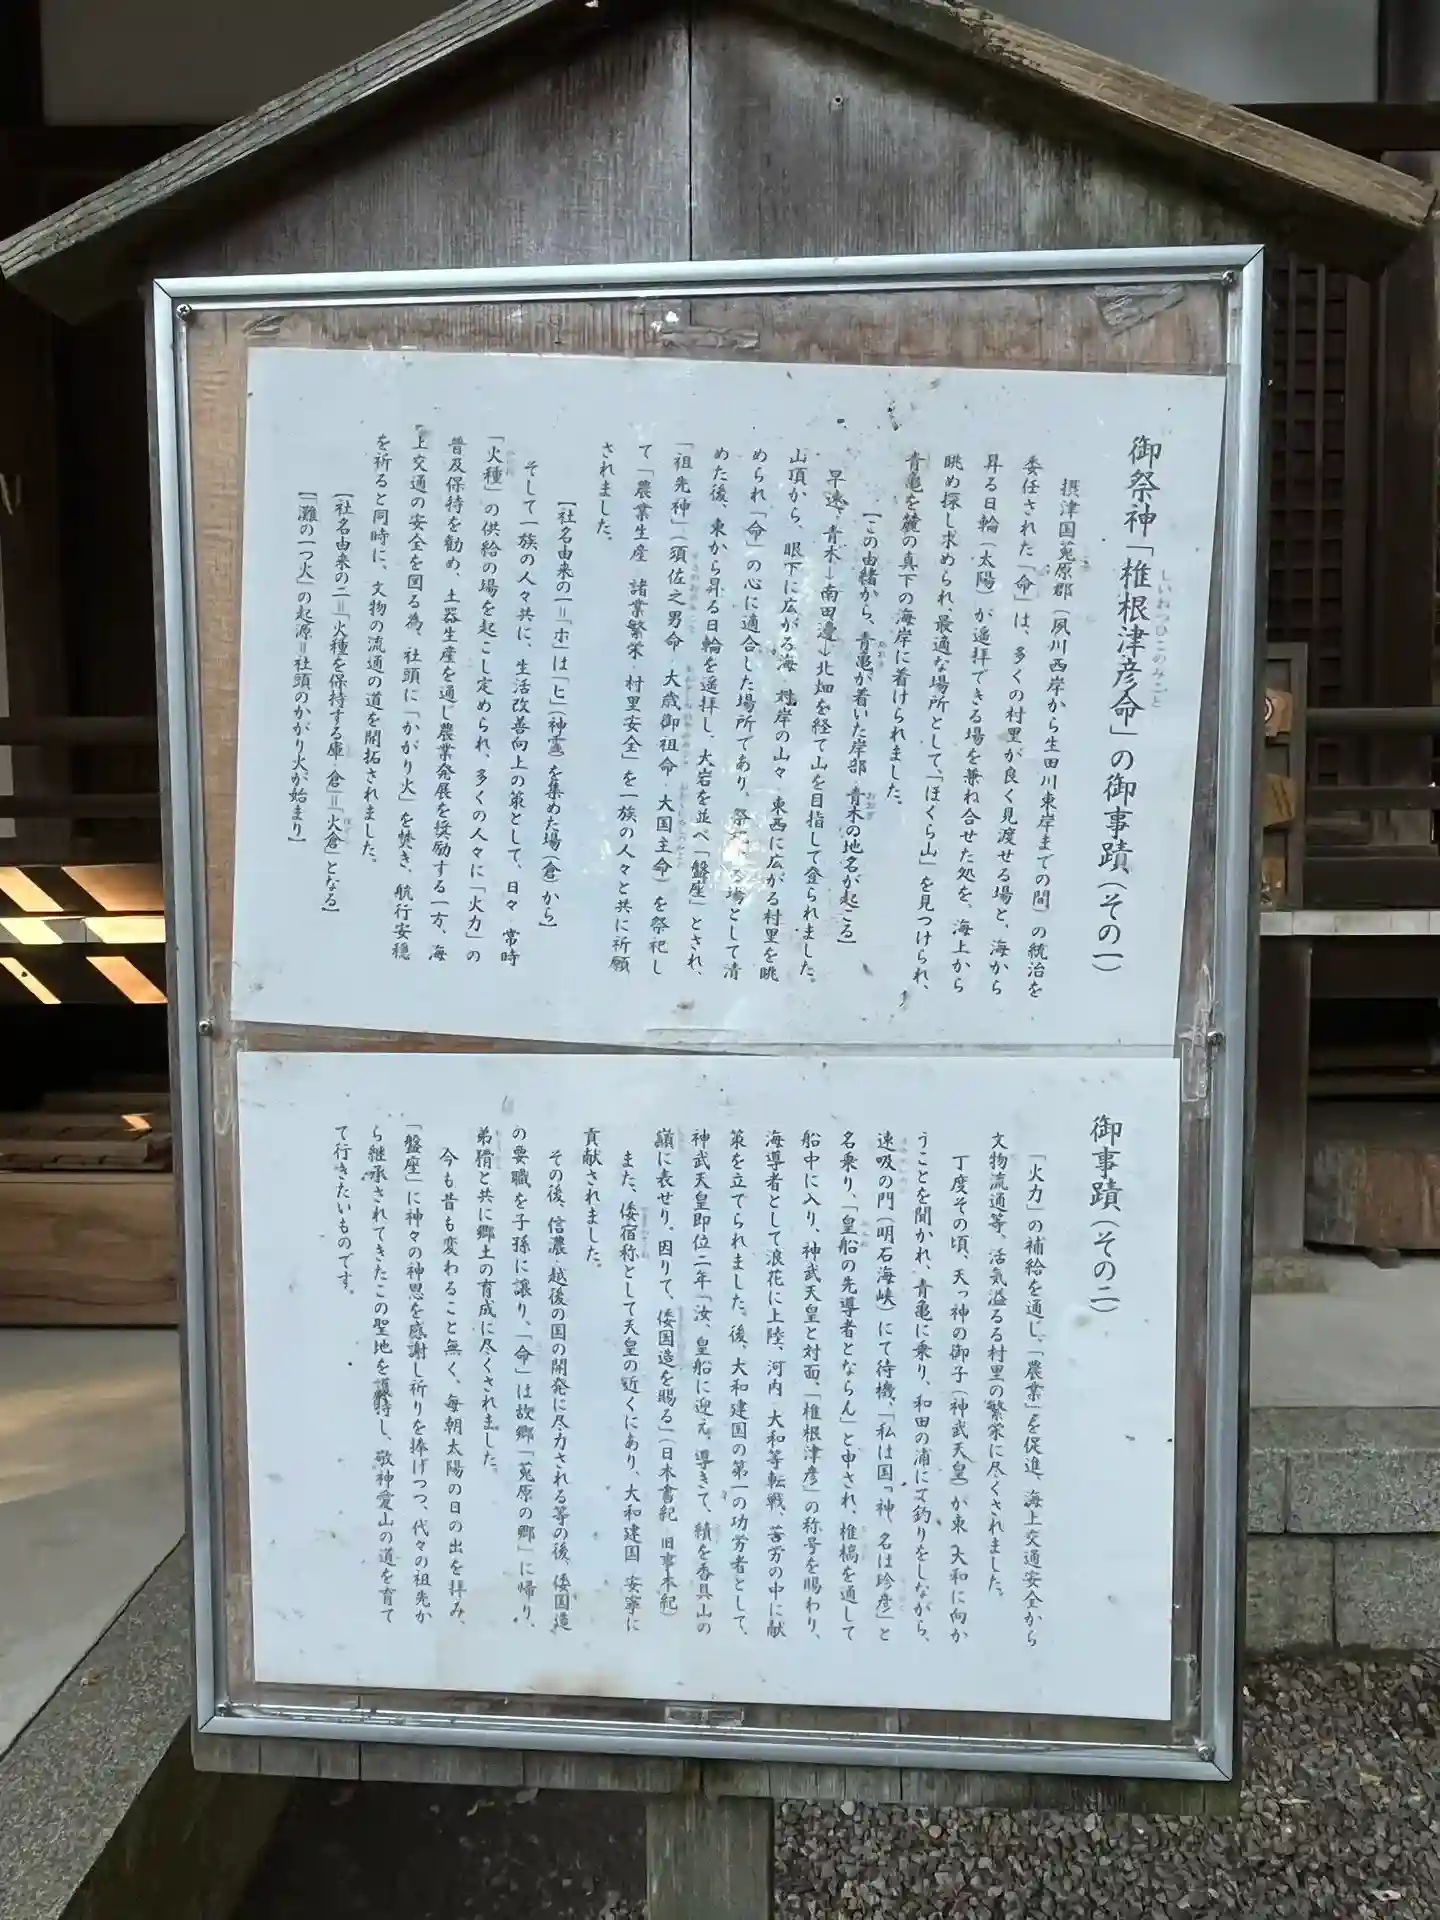 御祭神「椎根津彦命」の御事蹟(その一)
しいねつひこのみこと
摂津国菟原郡(夙川西岸から生田川東岸までの間)の統治を
委任された「命」は、多くの村里が良く見渡せる場と、海から
昇る日輪(太陽)が遥拝できる場を兼ね合せた処を、海上から
眺め探し求められ、最適な場所として、「ほくら山」を見つけられ、
青亀を麓の真下の海岸に着けられました。
【この由緒から、青亀が着いた岸部 青木の地名が起こる】
早速、青木→南田邊→北畑を経て山を目指して登られました。
山頂から、眼下に広がる海 対岸の山々 東西に広がる村里を眺
められ「命」の心に適合した場所であり、祭祀する場として清
めた後、東から昇る日輪を遥拝し、大岩を並べ「盤座」とされ、
「祖先神」(須佐之男命 大歳御祖命 大国主命)を祭祀し
て「農業生産 諸業繁栄 村里安全」を一族の人々と共に祈願
されました。
【社名由来の一=「ホ」は「ヒ」(神霊)を集めた場(倉)から】
そして一族の人々共に、生活改善向上の策として、日々 常時
「火種」の供給の場を起こし定められ、多くの人々に「火力」の
普及保持を勧め、土器生産を通し農業発展を奨励する一方、海
上交通の安全を図る為、社頭に「かがり火」を焚き、航行安穏
を祈ると同時に、文物の流通の道を開拓されました。
【社名由来の二=「火種を保持する庫 倉」=「火倉」となる】
【「灘の一つ火」の起源=社頭のかがり火が始まり】
御事蹟(その二)
「火力」の補給を通し、「農業」を促進、海上交通安全から
文物流通等、活気溢るる村里の繁栄に尽くされました。
丁度その頃、天っ神の御子(神武天皇)が東 大和に向か
うことを聞かれ、青亀に乗り、和田の浦にて釣りをしながら、
速吸の門(明石海峡)にて待機、「私は国つ神、名は珍彦」と
名乗り、「皇船の先導者とならん」と申され、椎槁を通して
船中に入り、神武天皇と対面、「椎根津彦」の称号を賜わり、
海導者として浪花に上陸、河内 大和等転戦、苦労の中に献
策を立てられました。後、大和建国の第一の功労者として、
神武天皇即位二年「汝、皇船に迎え、導きて、績を香具山の
嶺に表せり。因りて、倭国造を賜る」(日本書紀 旧事本紀)
また、倭宿祢として天皇の近くにあり、大和建国 安寧に
貢献されました。
その後、信濃 越後の国の開発に尽力される等の後、倭国造
の要職を子孫に譲り、「命」は故郷「菟原の郷」に帰り、
弟猾と共に郷土の育成に尽くされました。
今も昔も変わること無く、毎朝太陽の日の出を拝み、
「盤座」に神々の神恩を感謝し祈りを捧げつつ、代々の祖先か
ら継承されてきたこの聖地を護持し、敬神愛山の道を育て
て行きたいものです。